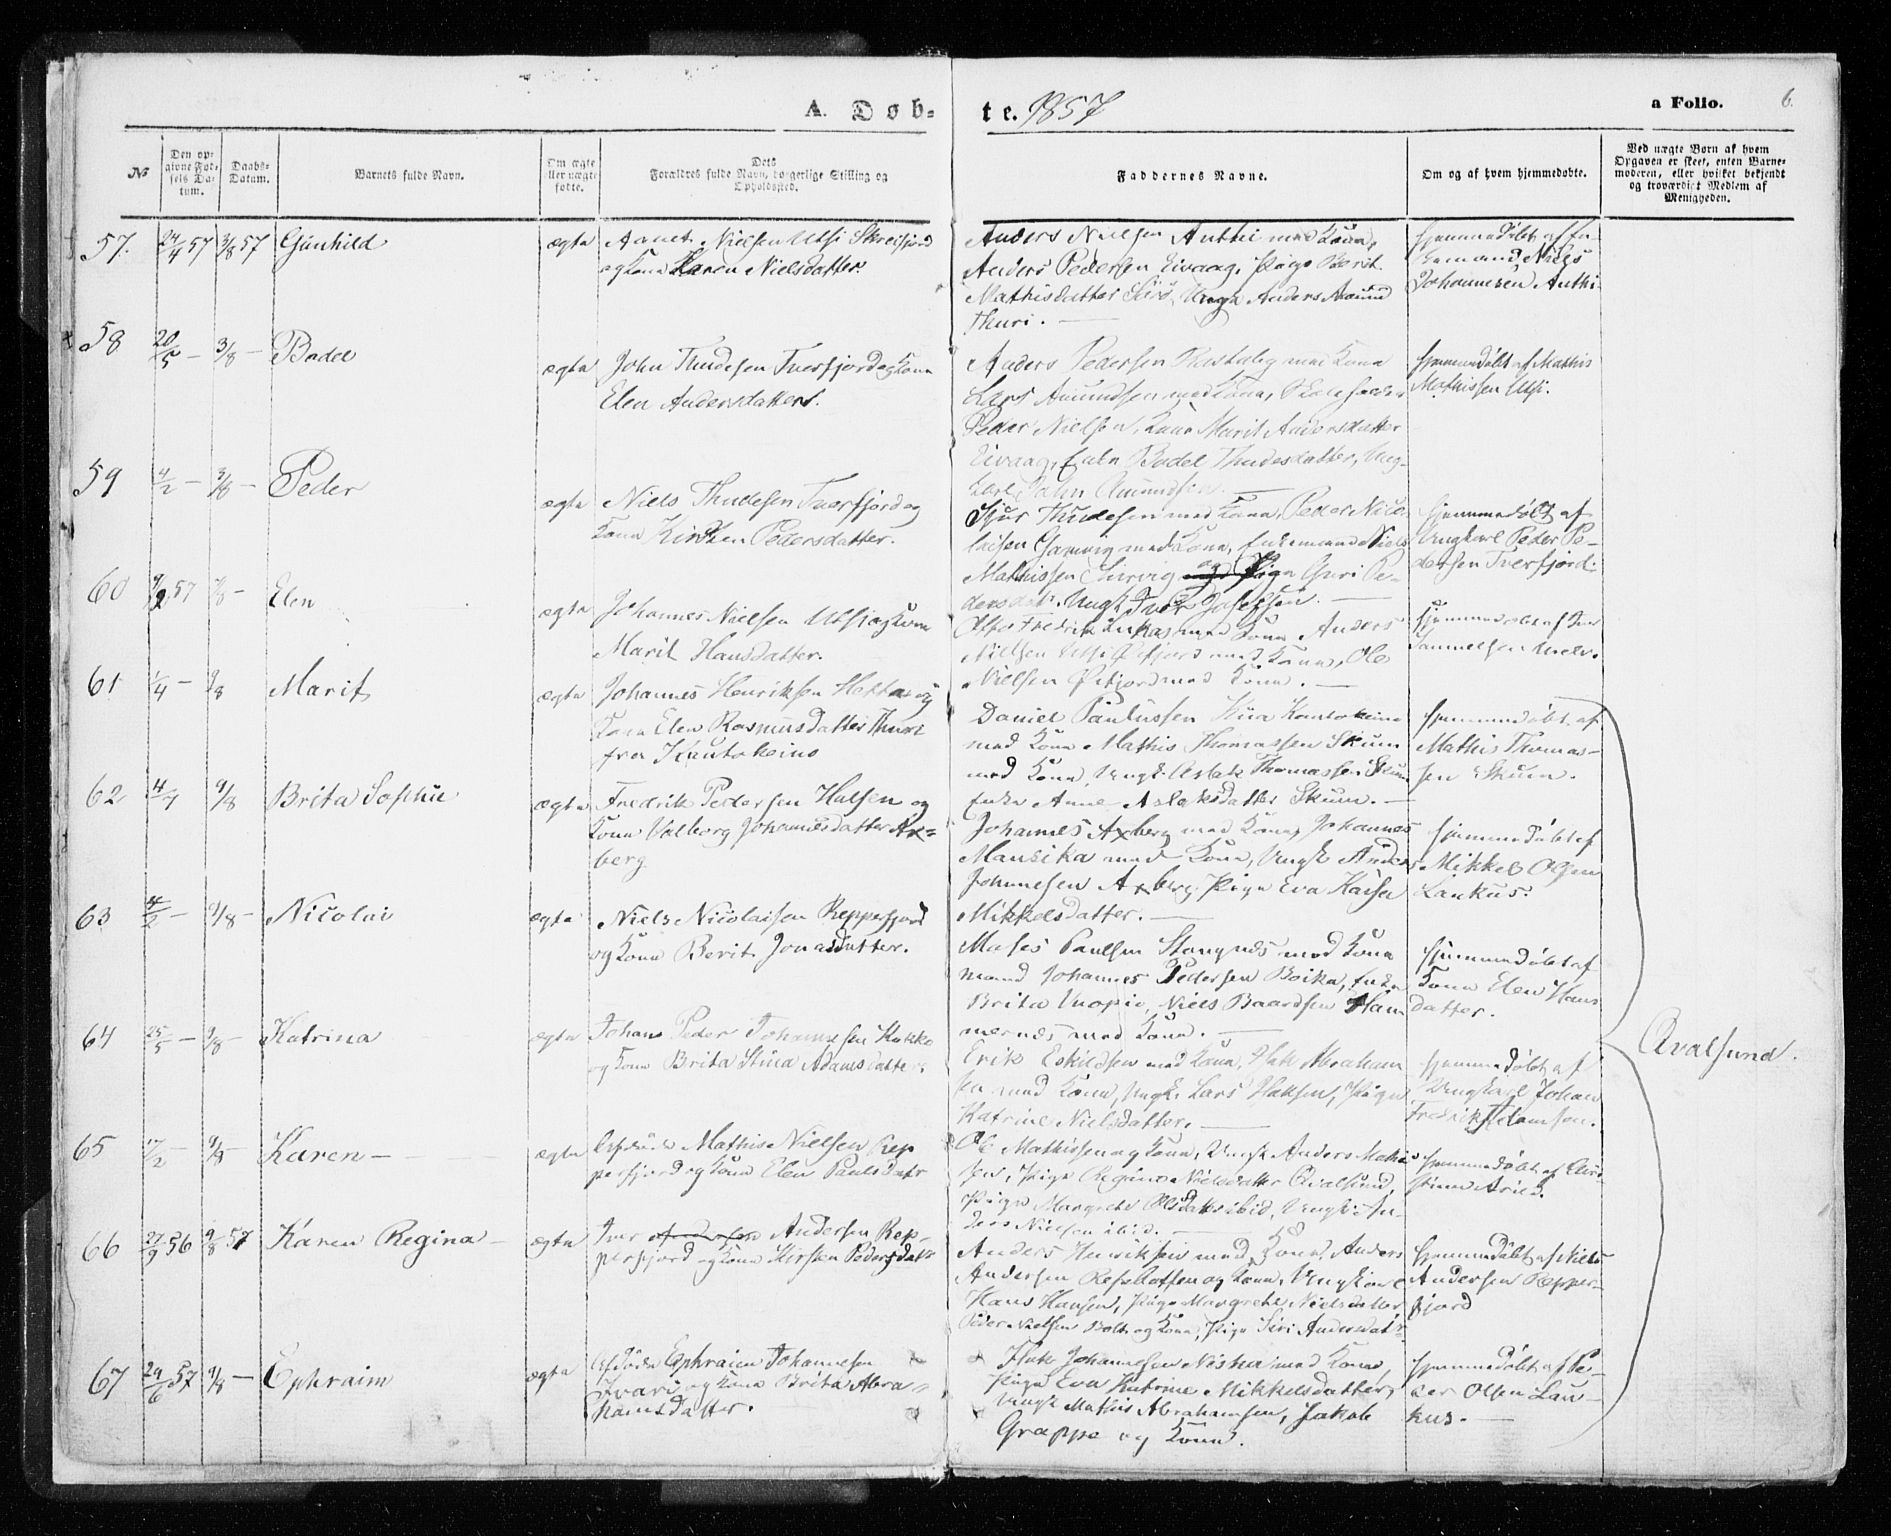 A. Døb-
te. 1857
a Folio. 6.
№
Den op-
givne Fød-
sels Da-
tum.
Daabs-
Datum.
Barnets fulde Navn.
Om ægte
eller uægte
fødte.
Dets
Forældres fulde Navn, borgerlige Stilling og
Opholdssted.
Faddernes Navne.
Om og af hvem hjemmedøbte.
Ved uægte Børn af hvem
Opgaven er skeet, enten Barne-
moderen, eller hvilket bekjendt
og troværdigt Medlem af
Menigheden.
57. 24/4 57 3/8 57 Gunhild ægte Nielsen Utsi
og Kone Karen Nielsdatter.
Anders Nielsen Anthi med Kone,
Anders Pedersen Eivaag, Pige Berit
Mathisdatter Siri, Ungk Anders Amund
Thuri.
hjemmedøbt af En-
kemand Niels
Johannesen Anthi
58 20/5 - 3/8 - Bodel ægte John Thudesen Tverfjord og Kone
Elen Andersdatter.
Anders Pedersen med Kone
Lars Amundsen med Kone,
Peder Nielsen, Kone Marit Andersdatter
Eivaag, Enke Bodel Thudesdatter, Ung-
karl John Amundsen.
hjemmedøbt af Mathis
Mathissen Utsi.
59 4/2 - 3/8 - Peder ægte Niels Thudesen Tverfjord og
Kone Kirsten Pedersdatter.
Sjur Thudesen med Kone, Peder Nico-
laisen med Kone, Enkemand Niels
Mathissen og Pige Guri Pe-
dersdatr. Ungk Iver Josefsen.
hjemmedøbt af
Ungkarl Peder Pe-
dersen Tverfjord.
60 57 Elen ægte Johannes Nielsen Utsi og Kone
Marit Hansdatter.
Fredrik Lukas med Kone Anders
Nielsen Utsi med Kone, Ole
Nielsen med Kone.
hjemmedøbt af
Sammelsen
61 1/4 - 9/8 Marit ægte Johannes Henriksen Hetta og
Kone Elen Rasmusdatter Thuri
fra Kautokeino
Daniel Paulussen Kautokeino
med Kone Mathis Thomassen Skum
med Kone, Ungk. Aslak Thomassen Skum
Enke Anne Aslaksdatter Skum.
hjemmedøbt af
Mathis Thomas-
sen Skum.
62 9/8 Brita Sophie ægte Fredrik Pedersen Halsen og
Kone Valborg Johannesdatter Ax-
berg
Johannes Axberg med Kone, Johannes
Mansika med Kone, Ungk Anders
Johannesen Axberg, Pige Eva Kaisa
Mikkelsdatter.
hjemmedøbt af
Mikkel Olsen
Laukus.
63 4/2 - 9/8 - Nicolai ægte Niels Nicolaisen Repperfjord
og Kone Berit Jonasdatter.
Moses Paulsen Stangnes med Kone
mand Johannes Pedersen Boika, Enke
Brita Vuopio, Niels Baardsen Ham
mernes med Kone.
hjemmedøbt af
Kone Elen Hans
datter.
64 25/5 - 9/8 - Katrina ægte Johan Peder Johannesen
og Kone Brita Stina Adamsdatter.
Erik Eskildsen med Kone, Isak Abraham
sen med Kone, Ungk. Lars Isaksen, Pige
Katrine Nielsdatter.
hjemmedøbt af
Ungkarl Johan
Fredrik Adamsen.
65 17/2 - 9/8 - Karen - ægte Mathis Nielsen Rep
perfjord og Kone Elen Paulsdatr
Ole Mathissen og Kone, Ungk Anders Mathis
sen, Pige Regine Nielsdatter Qvalsund,
Pige Margrete Olsdatter ibid, Ungk An-
ders Nielsen ibid.
hjemmedøbt af
66 27/9 56 9/8 57 Karen Regina - ægte Iver Andersen Rep-
perfjord og Kone Kirsten Pedersdatr
Anders Henriksen med Kone, Anders
Andersen og Kone, Ungkarl
Hans Hansen, Pige Margrethe Nielsdatter
Peder Nielsen og Kone, Pige Siri Andersdatr
hjemmedøbt af Niels
Andersen Repper-
fjord
67 29/6 57 9/8 - Ephraim ægte Ephraim Johannesen
Ivari og Kone Brita Abra-
hamsdatter.
Isak Johannesen med Kone,
Pige Eva Katrine Mikkelsdatter,
Ungk Mathis Abrahamsen, Jakob
Grappe og Kone.
hjemmedøbt af Pe-
der Olsen Lau-
kus.
Qvalsund.